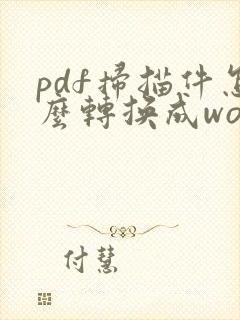 pdf掃描件怎
麼轉換成wo
付慧